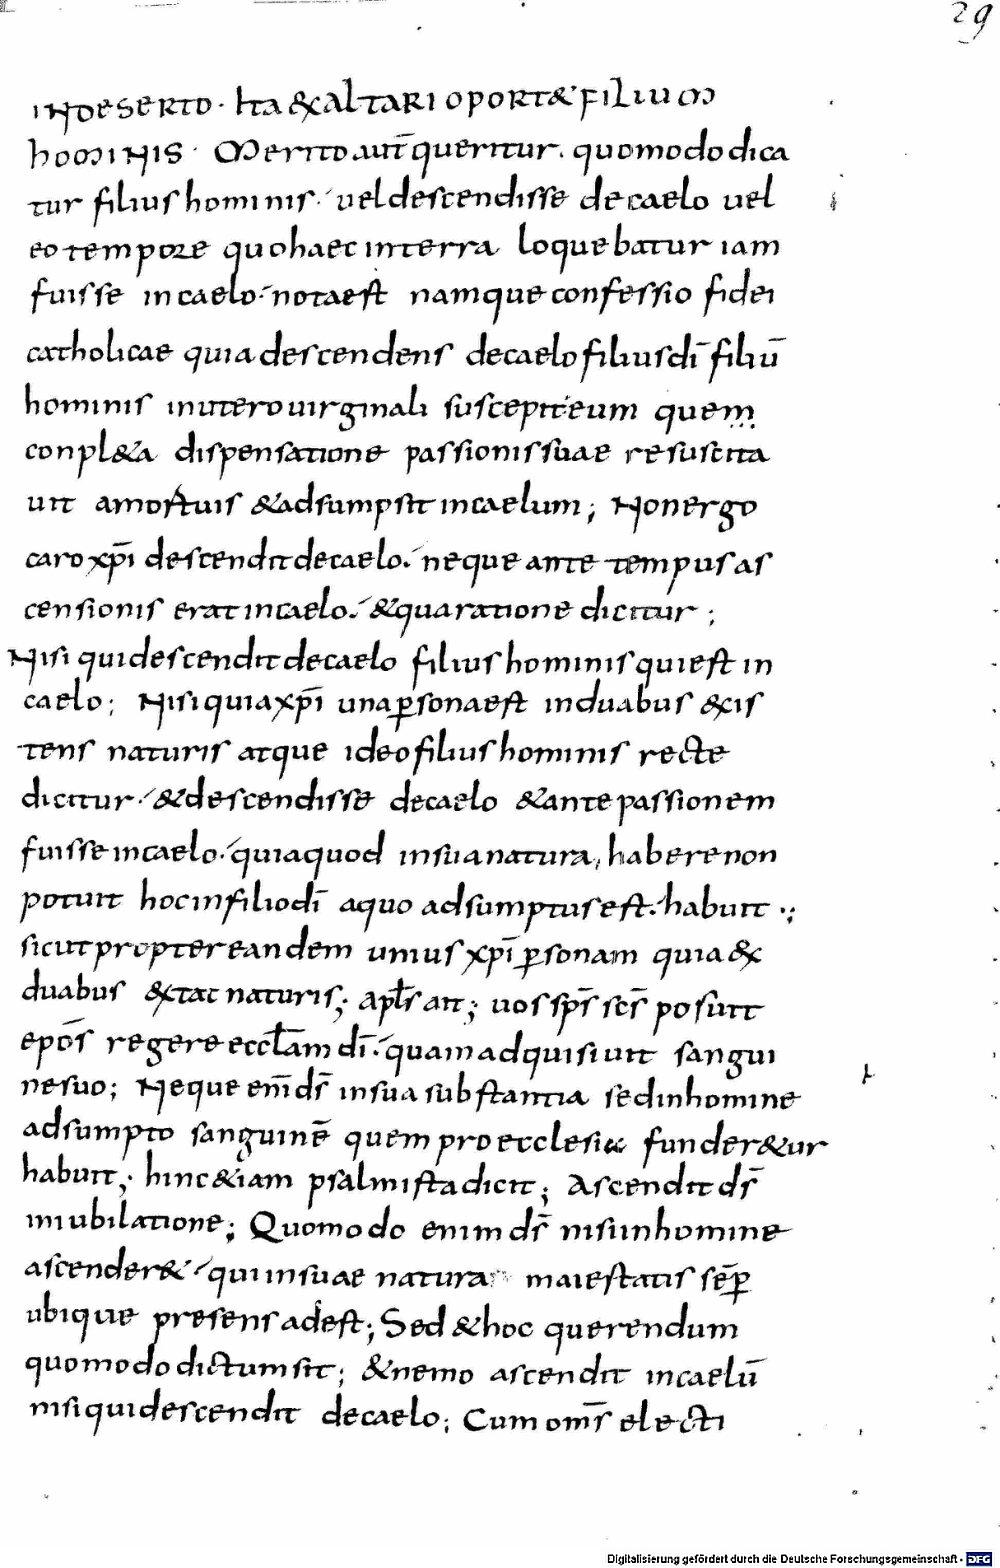 29
INDESERTO · Ita &exaltari oport& filium
hominis · Merito aut̄ queritur. quomodo dica
tur filius hominis · uel descendisse de caelo uel
eo tempore quo haec in terra loquebatur iam
fuisse in caelo · nota est namque confessio fidei
catholicae quia descendens de caelo filius dī filiū
hominis in utero uirginali suscepit eum quem
conpl&a dispensatione passionis suae resuscita
uit a mortuis & adsumpsit in caelum; Non ergo
caro xp̄i descendit de caelo. neque ante tempus as
censionis erat in caelo. & qua ratione dicitur;
Nisi qui descendit de caelo filius hominis qui est in
caelo; Nisi quia xp̄i una p̄sona est in duabus &xis
tens naturis atque ideo filius hominis recte
dicitur · & descendisse de caelo & ante passionem
fuisse in caelo · quia quod in sua natura, habere non
potuit hoc in filio dī a quo adsumptus est. habuit ·;
sicut propter eandem unius xp̄i p̄sonam quia &x
duabus &xtat naturis; apl̄s ait; uos sp̄s sc̄s posuit
ep̄os regere eccl̄am dī · quam adquisiuit sangui
ne suo; Neque enī d̄s in sua substantia sed in homine
adsumpto sanguinē quem pro ecclesia funder&ur
habuit; hinc &iam psalmista dicit; Ascendit d̄s
in iubilatione; Quomodo enim d̄s nisi in homine
ascender& · qui in suae natura maiestatis sēp
ubique presens adest; Sed & hoc querendum
quomodo dictum sit; & nemo ascendit in caelū
nisi qui descendit de caelo; Cum om̄s electi
Digitalisierung gefördert durch die Deutsche Forschungsgemeinschaft - DFG